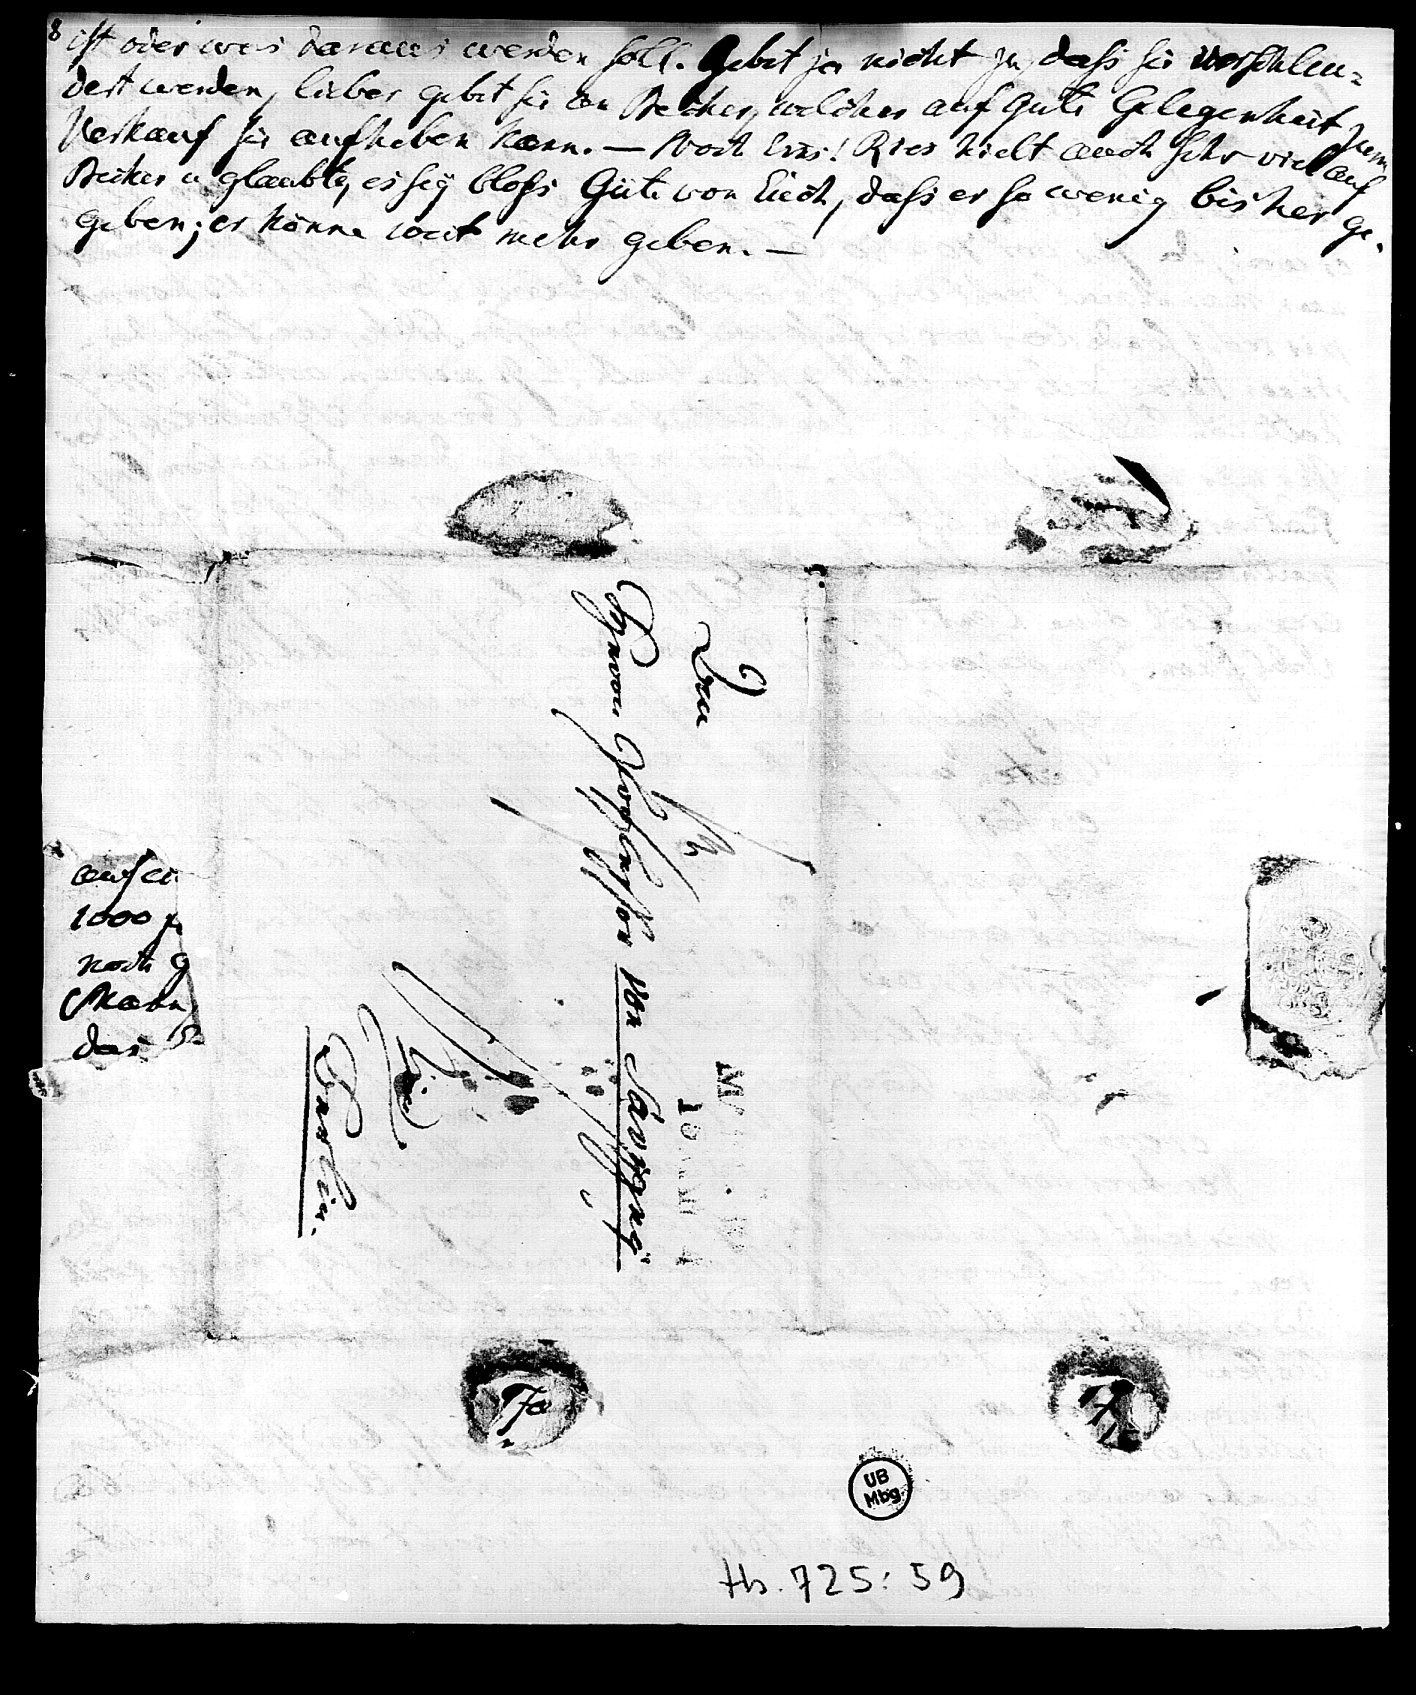 8
ist oder was daraus werden soll. Gebt ja nicht zu, dass sie verschleu=
dert werden, lieber gebt sie an Becker, welcher auf gute Gelegenheit zum
Verkauf sie aufheben kann. — Noch Eins! Ries hielt auch sehr viel auf
Becker u glaubte, es sey bloss Güte von Euch, dass er so wenig bisher ge-
geben; er könne weit mehr geben. —
Des
Herrn Professor von Savigny
in
Berlin.
auf ei
1000 f
noch g
Mann
das
UB
Mbg.
Hs. 725: 59